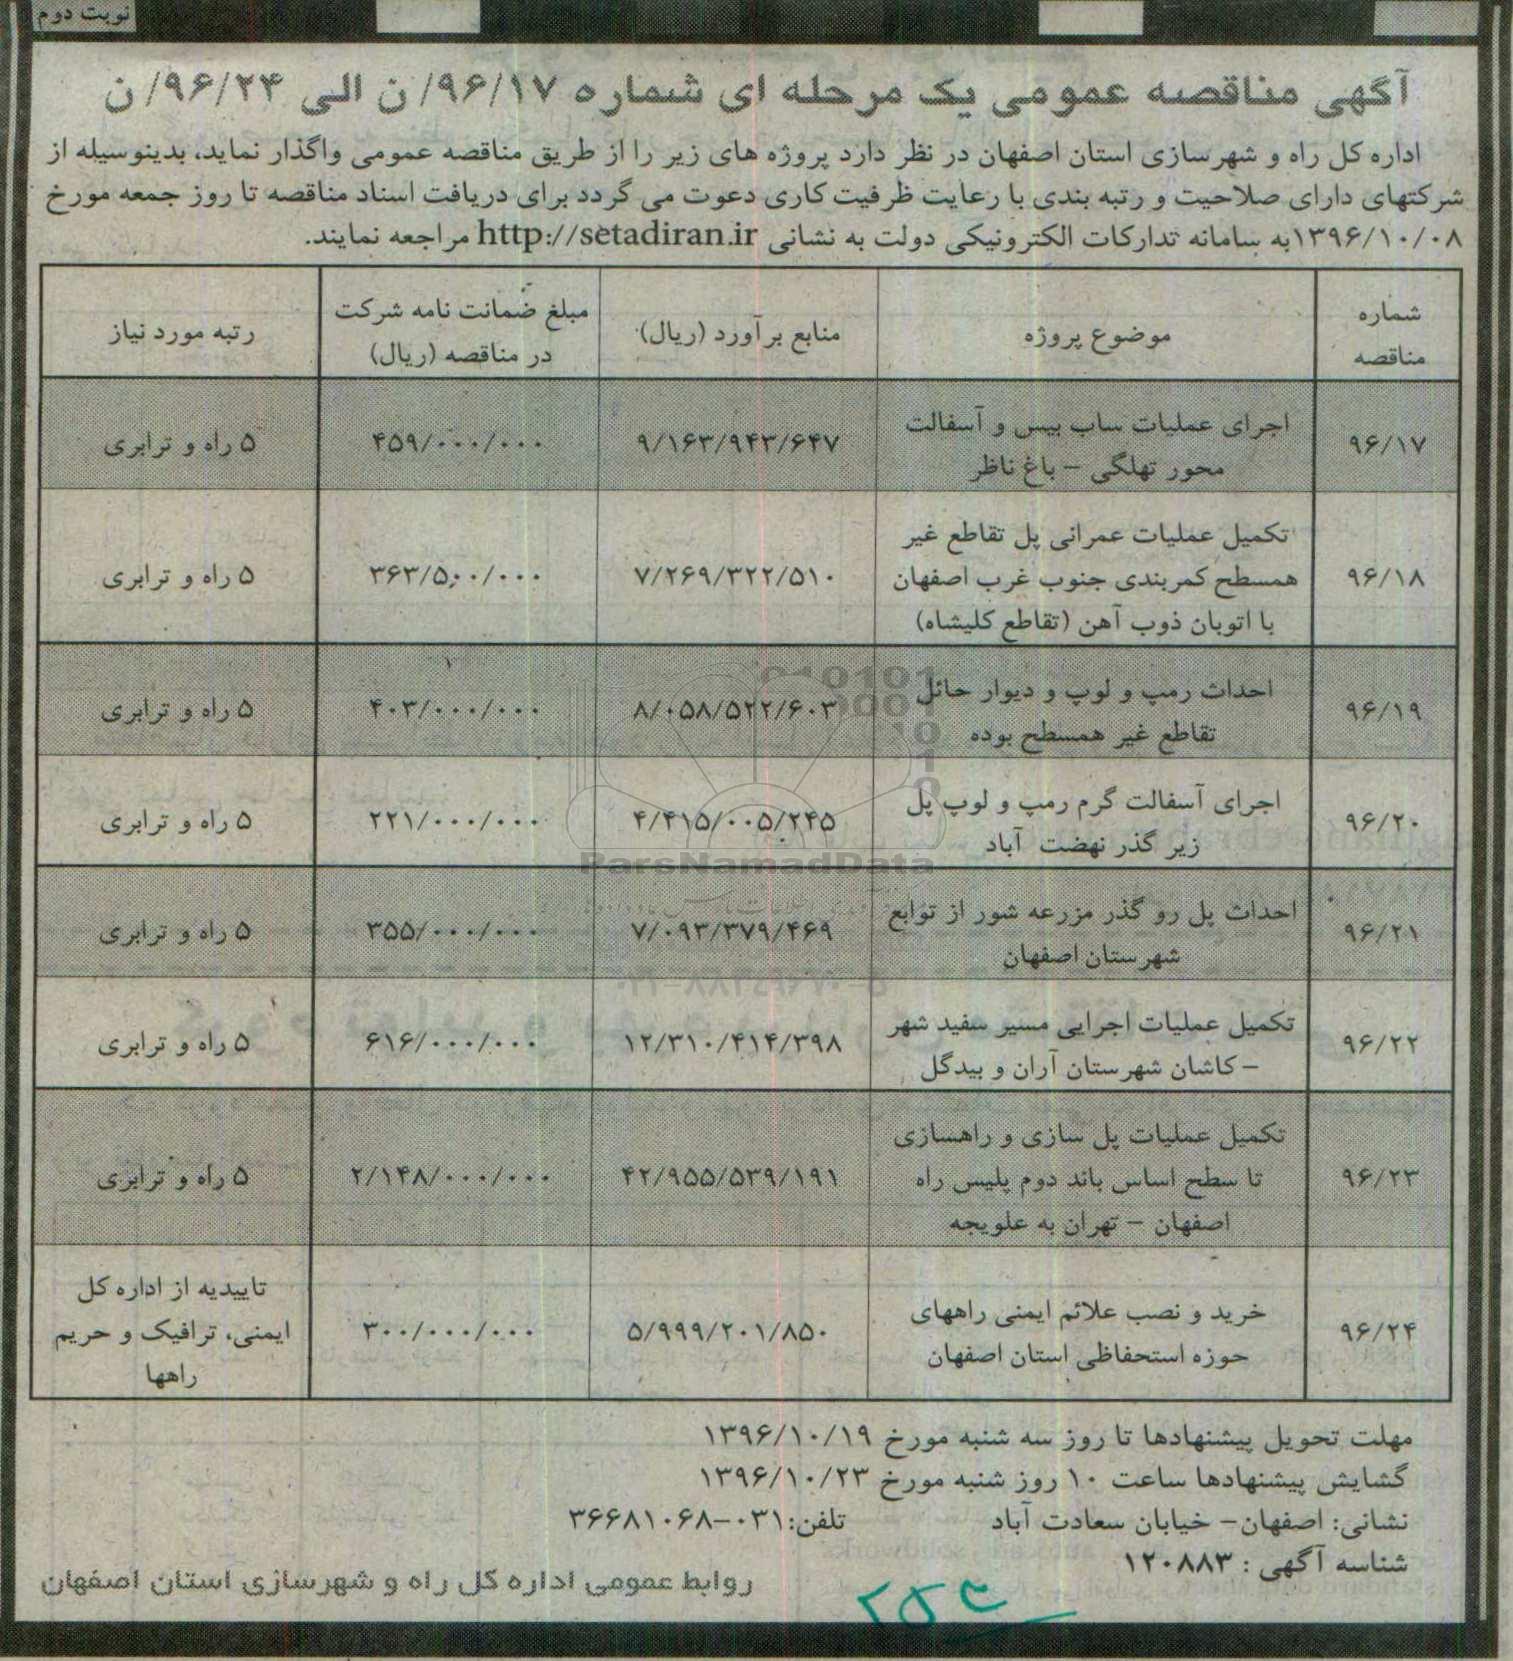 نوبت دوم
آگهی مناقصه عمومی یک مرحله ای شماره ۹۶/۱۷/ ن الی ۹۶/۲۴/ ن
اداره کل راه و شهرسازی استان اصفهان در نظر دارد پروژه های زیر را از طریق مناقصه عمومی واگذار نماید، بدینوسیله از
شرکتهای دارای صلاحیت و رتبه بندی با رعایت ظرفیت کاری دعوت می گردد برای دریافت اسناد مناقصه تا روز جمعه مورخ
۱۳۹۶/۱۰/۰۸به سامانه تدارکات الکترونیکی دولت به نشانی http://setadiran.ir مراجعه نمایند.
شماره
مناقصه
موضوع پروژه
منابع برآورد (ریال)
مبلغ ضمانت نامه شرکت
در مناقصه (ریال)
رتبه مورد نیاز
۹۶/۱۷
اجرای عملیات ساب بیس و آسفالت
محور تهلگی – باغ ناظر
۹/۱۶۳/۹۴۳/۶۴۷
۴۵۹/۰۰۰/۰۰۰
۵ راه و ترابری
۹۶/۱۸
تکمیل عملیات عمرانی پل تقاطع غیر
همسطح کمربندی جنوب غرب اصفهان
با اتوبان ذوب آهن (تقاطع کلیشاه)
۷/۲۶۹/۳۲۲/۵۱۰
۳۶۳/۵۰۰/۰۰۰
۵ راه و ترابری
۹۶/۱۹
احداث رمپ و لوپ و دیوار حائل
تقاطع غیر همسطح بوده
۸/۰۵۸/۵۲۲/۶۰۳
۴۰۳/۰۰۰/۰۰۰
۵ راه و ترابری
۹۶/۲۰
اجرای آسفالت گرم رمپ و لوپ پل
زیر گذر نهضت آباد
۴/۴۱۵/۰۰۵/۲۴۵
۲۲۱/۰۰۰/۰۰۰
۵ راه و ترابری
ParsNamadData
۹۶/۲۱
احداث پل رو گذر مزرعه شور از توابع
شهرستان اصفهان
۷/۰۹۳/۳۷۹/۴۶۹
۳۵۵/۰۰۰/۰۰۰
۵ راه و ترابری
۰۲۱-۸۸۳۴۹۶۷۰-۵
۹۶/۲۲
تکمیل عملیات اجرایی مسیر سفید شهر
– کاشان شهرستان آران و بیدگل
۱۲/۳۱۰/۴۱۴/۳۹۸
۶۱۶/۰۰۰/۰۰۰
۵ راه و ترابری
۹۶/۲۳
تکمیل عملیات پل سازی و راهسازی
تا سطح اساس باند دوم پلیس راه
اصفهان – تهران به علویجه
۴۲/۹۵۵/۵۳۹/۱۹۱
۲/۱۴۸/۰۰۰/۰۰۰
۵ راه و ترابری
۹۶/۲۴
خرید و نصب علائم ایمنی راههای
حوزه استحفاظی استان اصفهان
۵/۹۹۹/۲۰۱/۸۵۰
۳۰۰/۰۰۰/۰۰۰
تاییدیه از اداره کل
ایمنی، ترافیک و حریم
راهها
مهلت تحویل پیشنهادها تا روز سه شنبه مورخ ۱۳۹۶/۱۰/۱۹
گشایش پیشنهادها ساعت ۱۰ روز شنبه مورخ ۱۳۹۶/۱۰/۲۳
نشانی: اصفهان- خیابان سعادت آباد تلفن:۰۳۱-۳۶۶۸۱۰۶۸
شناسه آگهی : ۱۲۰۸۸۳
روابط عمومی اداره کل راه و شهرسازی استان اصفهان